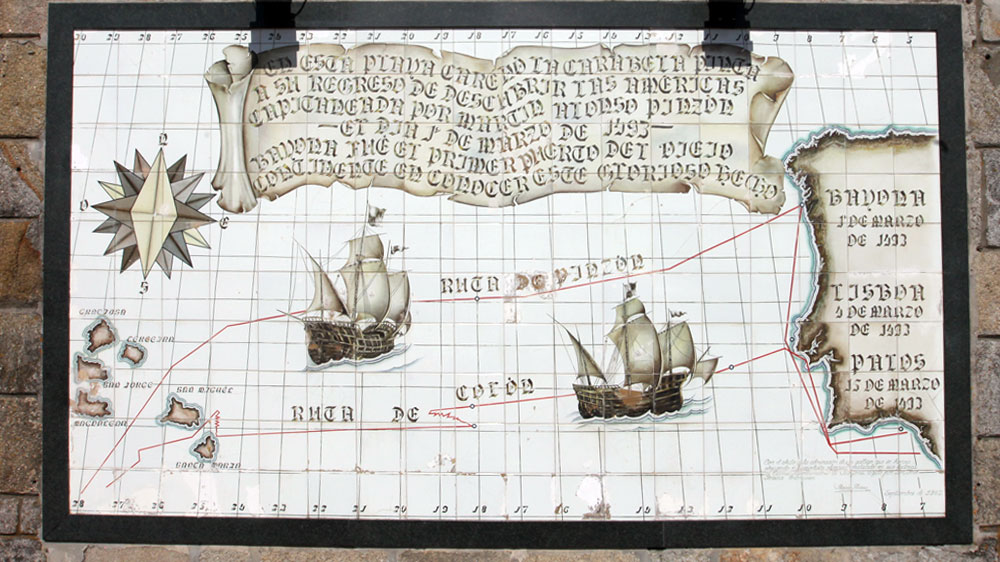 30 29 28 27 26 25 24 23 22 21 20 19 18 17 16 15 14 13 12 11 10 9 8 7 6 5
EN ESTA PLAYA CARENO LA CARABELA PINTA
A SU REGRESO DE DESCUBRIR LAS AMERICAS
CAPITANEADA POR MARTIN ALONSO PINZÓN
—EL DIA 1º DE MARZO DE 1493—
BAYONA FUE EL PRIMER PUERTO DEL VIEJO
CONTINENTE EN CONOCER ESTE GLORIOSO HECHO
N
O
E
S
BAYONA
1º DE MARZO
DE 1493
RUTA DE PINZÓN
LISBOA
4 DE MARZO
DE 1493
GRACIOSA
SAO JORGE
PALOS
15 DE MARZO
DE 1493
SAO MIGUEL
COLÓN
RUTA DE
SANTA MARIA
28 27 26 25 24 23 22 21 20 19 18 17 16 15 14 13 12 11 10 9 8 7